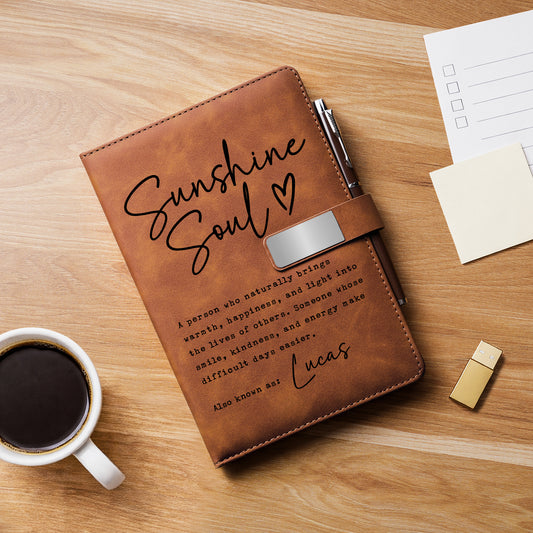 Sunshine
Soul
A person who naturally brings
warmth, happiness, and light into
the lives of others. Someone whose
smile, kindness, and energy make
difficult days easier.
Also known as: Lucas